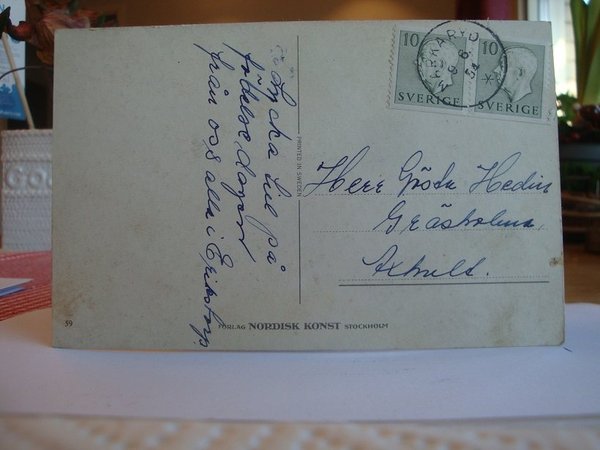 Lycka till på
födelsedagen
från oss alla i Erikstorp.
PRINTED IN SWEDEN
10
SVERIGE
10
SVERIGE
MARKARYD
9 6
54
Herr Gösta Hedin
Gräsholma,
Axhult.
59
FÖRLAG NORDISK KONST STOCKHOLM